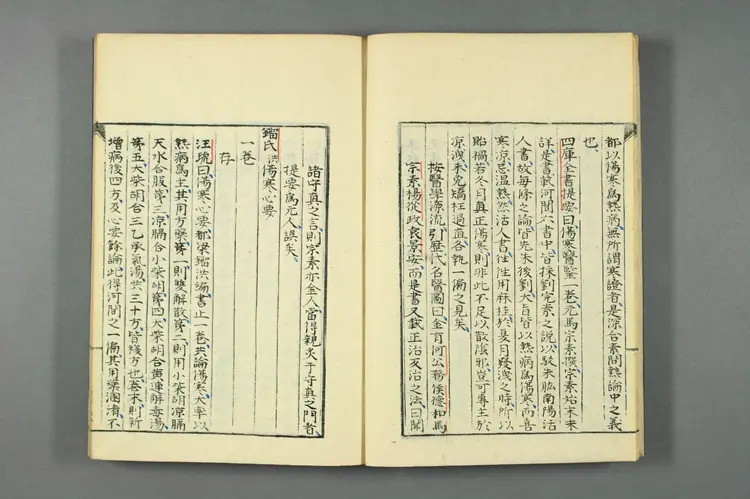 都以傷寒為熱病無所謂寒證者是深合素問熱論中之義
也
四庫全書提要曰傷寒醫鑒一卷元馬宗素撰宗素始末未
詳是書載河間六書中皆採劉完素之說以駁朱肱南陽活
人書故每條之論皆先朱後劉大旨皆以熱病為傷寒而喜
寒涼忌溫熱然活人書往往用麻桂於夏月發洩之時所以
貽禍若冬月真正傷寒則非此不足以散陰邪豈可專主於
涼洩未免矯枉過直各執一偏之見矣
按醫學源流引歷代名醫圖曰金有何公務侯德和馬
宗素楊從政袁景安而是書又載正治反治之法曰聞
諸守真之言則宗素亦金人當得親炙于守真之門者
提要為元人誤矣
鎦氏洪傷寒心要
一卷
存
汪琥曰傷寒心要都梁鎦洪編書止一卷其論傷寒大率以
熱病為主其用方藥第一則雙解散第二則用小柴胡涼膈
天水合服第三涼膈合小柴胡第四大柴胡合黃連解毒湯
第五大柴胡合三乙承氣湯共三十方皆複方也卷末則新
增病後四方及心要餘論此得河間之一偏其用藥溷淆不